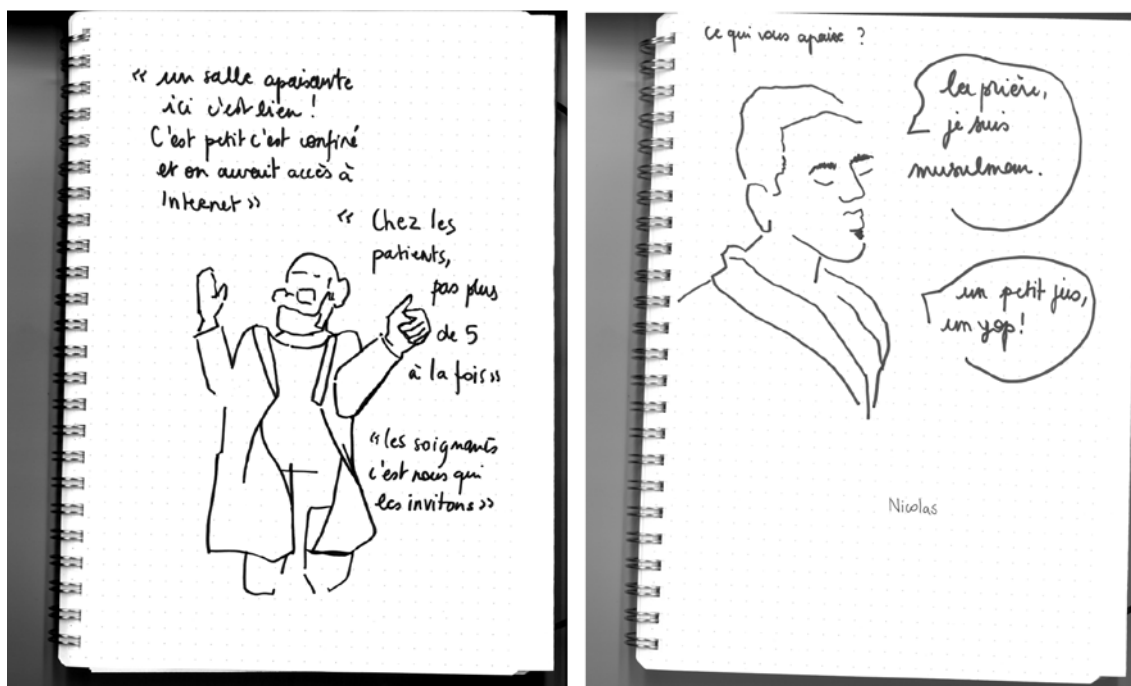 « un salle apaisante
ici c'est bien !
C'est petit c'est confiné
et on aurait accès à
Internet »
« Chez les
patients,
pas plus
de 5
à la fois »
« les soignants
c'est nous qui
les invitons »
ce qui vous apaise ?
la prière,
je suis
musulman.
un petit jus,
un yop !
Nicolas